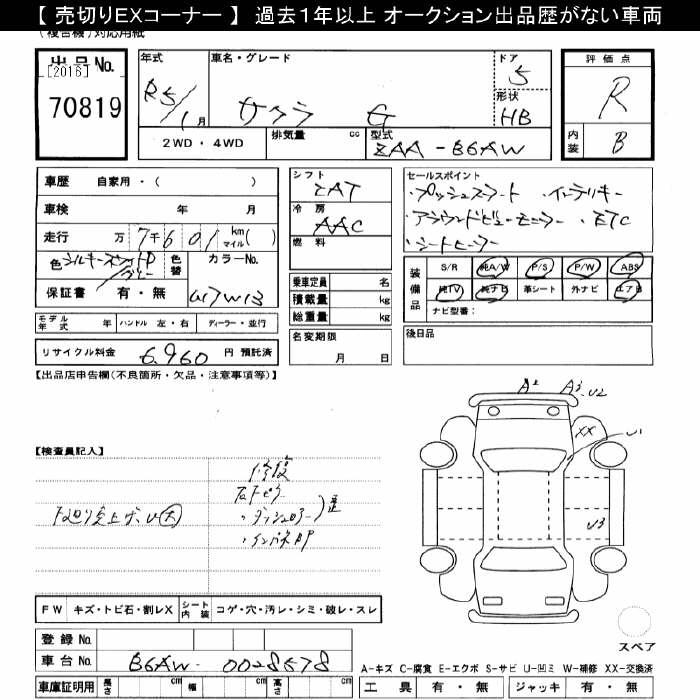 【 売切りEXコーナー 】 過去１年以上 オークション出品歴がない車両
(複合機)対応用紙
出品 No.
[2016]
70819
年式
R5/1月
車名・グレード
サクラ G
ドア
5
形状
HB
2WD ・ 4WD
排気量 cc
型式
ZAA-B6AW
評価点
R
内装
B
車歴 自家用・( )
車検 年 月
走行 万 7千601 km マイル ( )
色
色替
カラーNo.
保証書 有・無
モデル年式 年 ハンドル 左・右 ディーラー・並行
リサイクル料金 6,960 円 預託済
シフト
冷房
AAC
燃料
乗車定員 名
積載量 kg
総重量 kg
名変期限
月 日
セールスポイント
・プッシュスタート ・インテリキー
・アラウンドビューモニター ・ETC
・シートヒーター
装備品
S/R 純A/W P/S P/W ABS
純TV 純ナビ 革シート 外ナビ エアB
ナビ型番:
後日品
【出品店申告欄(不良箇所・欠品・注意事項等)】
【検査員記入】
修復
下廻り突上げ、U大
・ダッシュロアー
・インパネ
歴
A2 A3 U2
XX
U1
U3
スペア
FW キズ・トビ石・割レX シート内装 コゲ・穴・汚レ・シミ・破レ・スレ
登録 No.
車台 No. B6AW-0028578
車庫証明用 長さ cm 幅 cm 高さ cm
A-キズ C-腐食 E-エクボ S-サビ U-凹ミ W-補修 XX-交換済
工具 有・無 ジャッキ 有・無